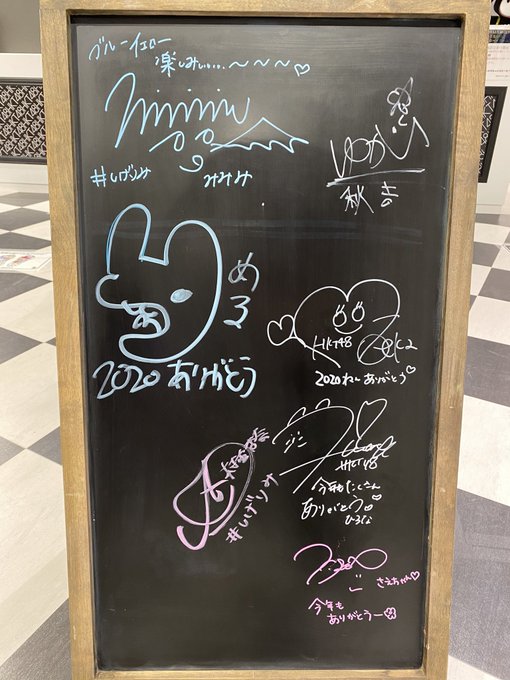 ブルーイエロー
楽しみぃ‥‥〜〜〜♡
#しげりみ
みみみ
ゆかり
秋吉
める
2020ありがとう
HKT48
2020ねんありがとう♡
HKT48
今年もたくさん
ありがとう。
ひろな
#しげりみ
さえちゃん♡
今年も
ありがとうー